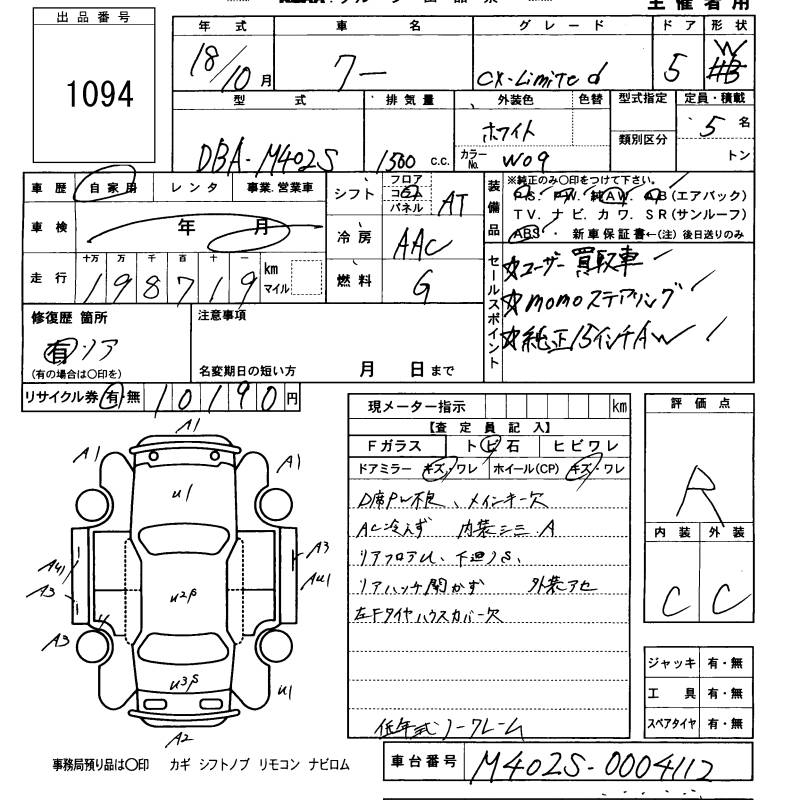 主催者用
出品番号
1094
年式 車名 グレード ドア 形状
18/10月 クー CX-Limited 5 W HB
型式 排気量 外装色 色替 型式指定 定員・積載
DBA-M402S 1500 c.c. ホワイト 類別区分 5名
カラーNo. W09 トン
車歴 自家用 レンタ 事業.営業車
シフト フロア コラム パネル AT
装備品 ※純正のみ〇印をつけて下さい。
P.S. P.W. 純AW. AB(エアバック)
TV. ナビ. カワ. SR(サンルーフ)
ABS 新車保証書←(注)後日送りのみ
車検 年 月
冷房 AAC
走行 十万 万 千 百 十 一
198719 km マイル
燃料 G
セールスポイント
☆ユーザー買取車
☆momoステアリング
☆純正15インチAW
修復歴 箇所
有 リア
(有の場合は〇印を)
注意事項
名変期日の短い方 月 日まで
リサイクル券 有・無 10190円
現メーター指示 km
【査定員記入】
Fガラス トビ石 ヒビワレ
ドアミラー キズ・ワレ ホイール(CP) キズ・ワレ
D席PW不良、メインキー欠
AC冷えず 内装シミ.A
リアフロアU、下廻りS、
リアハッチ開かず 外装アセ
左Fタイヤハウスカバー欠
低年式ノークレーム
評価点
R
内装 外装
C C
A1
A1 A1
U1
A3
A4 A4U1
A3
U2B
A3
U3B
U1
A2
ジャッキ 有・無
工具 有・無
スペアタイヤ 有・無
事務局預り品は〇印 カギ シフトノブ リモコン ナビロム
車台番号 M402S-0004112